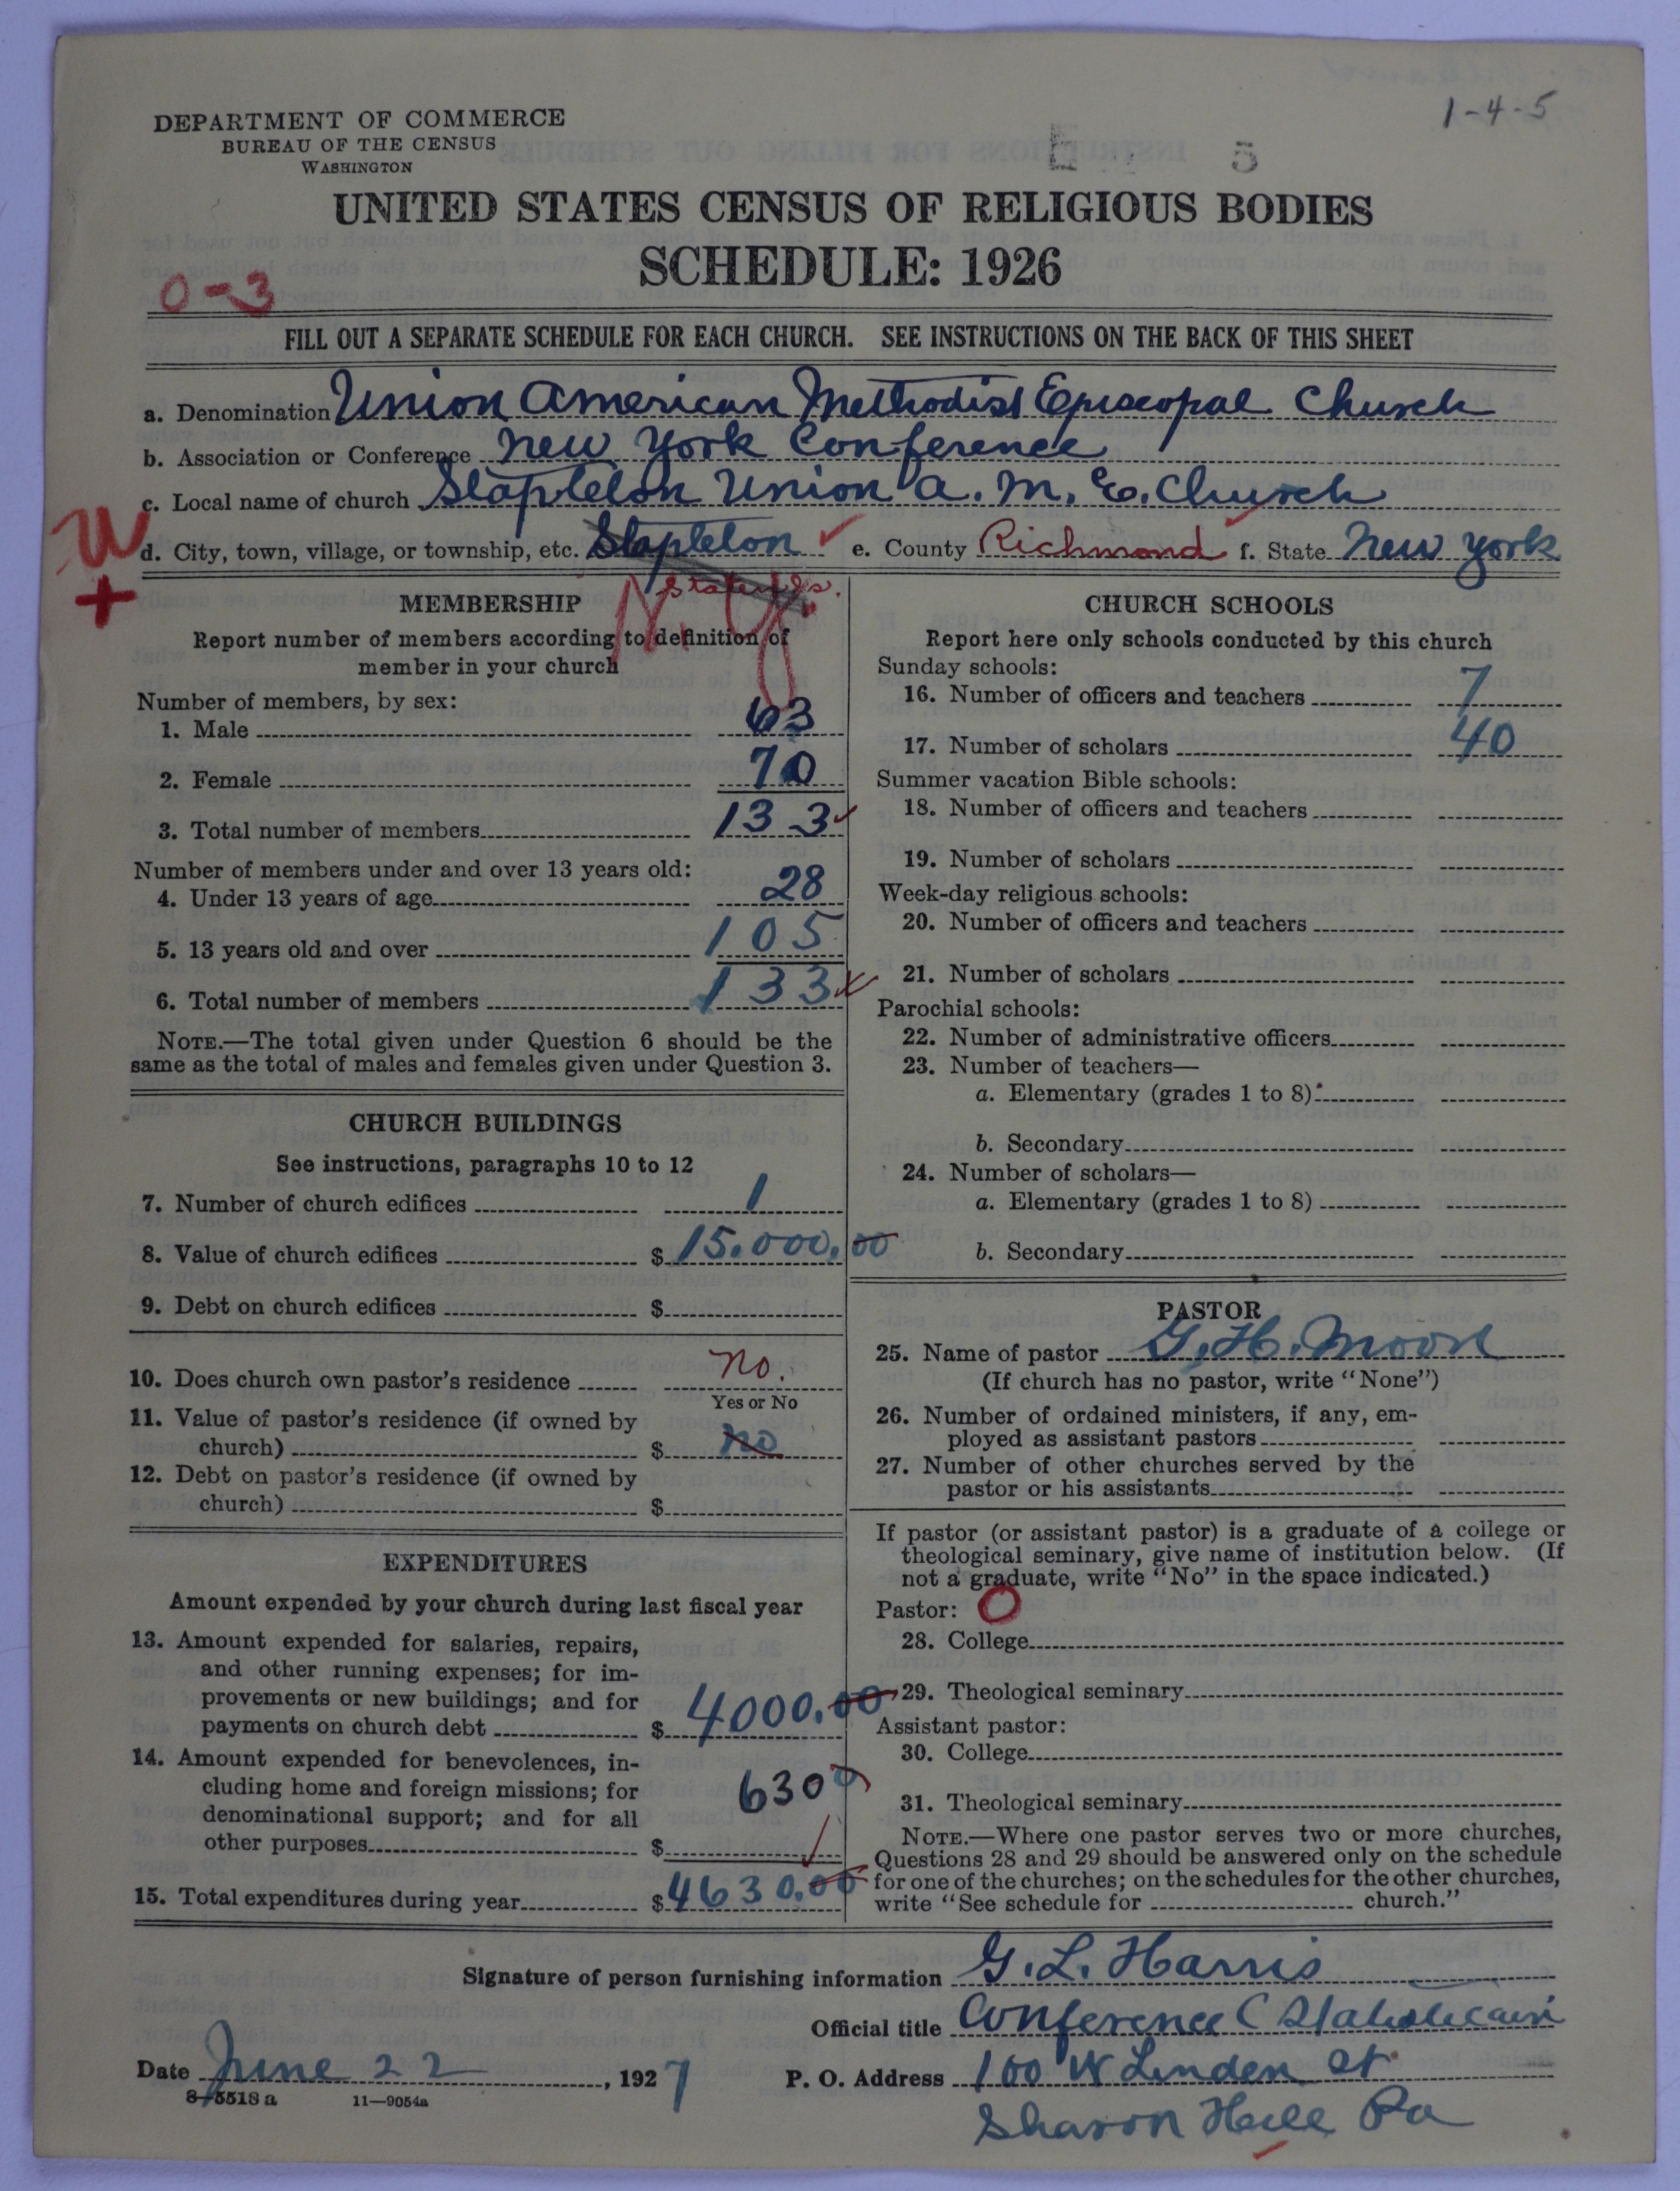 1-4-5
DEPARTMENT OF COMMERCE
BUREAU OF THE CENSUS
WASHINGTON
5
UNITED STATES CENSUS OF RELIGIOUS BODIES
SCHEDULE: 1926
0-3
FILL OUT A SEPARATE SCHEDULE FOR EACH CHURCH. SEE INSTRUCTIONS ON THE BACK OF THIS SHEET
a. Denomination Union American Methodist Episcopal Church
b. Association or Conference New York Conference
c. Local name of church Stapleton Union A. M. E. Church
W
d. City, town, village, or township, etc. Stapleton e. County Richmond f. State New York
+
N.Y.
MEMBERSHIP
Report number of members according to definition of
member in your church
Number of members, by sex:
1. Male 63
2. Female 70
3. Total number of members 133
Number of members under and over 13 years old:
4. Under 13 years of age 28
5. 13 years old and over 105
6. Total number of members 133
NOTE.—The total given under Question 6 should be the
same as the total of males and females given under Question 3.
CHURCH BUILDINGS
See instructions, paragraphs 10 to 12
7. Number of church edifices 1
8. Value of church edifices $ 15.000.00
9. Debt on church edifices $
10. Does church own pastor's residence no.
Yes or No
11. Value of pastor's residence (if owned by
church) $ no
12. Debt on pastor's residence (if owned by
church) $
EXPENDITURES
Amount expended by your church during last fiscal year
13. Amount expended for salaries, repairs,
and other running expenses; for im-
provements or new buildings; and for
payments on church debt $ 4000.00
14. Amount expended for benevolences, in-
cluding home and foreign missions; for
denominational support; and for all
other purposes $ 6300
15. Total expenditures during year $ 4630.00
CHURCH SCHOOLS
Report here only schools conducted by this church
Sunday schools:
16. Number of officers and teachers 7
17. Number of scholars 40
Summer vacation Bible schools:
18. Number of officers and teachers
19. Number of scholars
Week-day religious schools:
20. Number of officers and teachers
21. Number of scholars
Parochial schools:
22. Number of administrative officers
23. Number of teachers—
a. Elementary (grades 1 to 8)
b. Secondary
24. Number of scholars—
a. Elementary (grades 1 to 8)
b. Secondary
PASTOR
25. Name of pastor G. H. Moore
(If church has no pastor, write "None")
26. Number of ordained ministers, if any, em-
ployed as assistant pastors
27. Number of other churches served by the
pastor or his assistants
If pastor (or assistant pastor) is a graduate of a college or
theological seminary, give name of institution below. (If
not a graduate, write "No" in the space indicated.)
Pastor: O
28. College
29. Theological seminary
Assistant pastor:
30. College
31. Theological seminary
NOTE.—Where one pastor serves two or more churches,
Questions 28 and 29 should be answered only on the schedule
for one of the churches; on the schedules for the other churches,
write "See schedule for church."
Signature of person furnishing information G. L. Harris
Official title Conference Statistician
Date June 22, 1927
P. O. Address 100 W Linden St
Sharon Hill Pa
8-5518 a 11-9054a